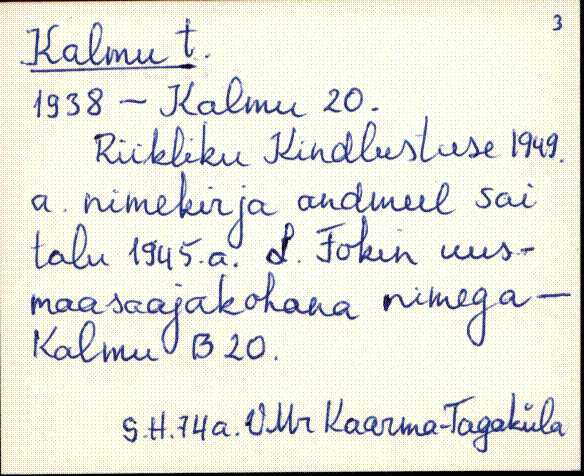 3
Kalmu t.
1938 – Kalmu 20.
Riikliku Kindlustuse 1949.
a. nimekirja andmeil sai
talu 1945.a. L. Fokin uus-
maasaajakohana nimega –
Kalmu B 20.
S.H.74a. VMr Kaarma-Tagaküla